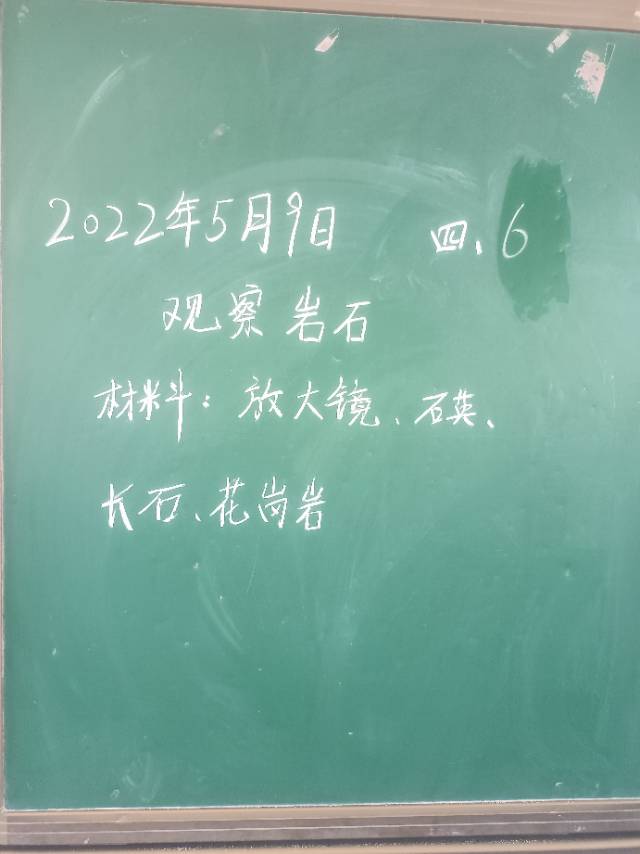 2022年5月9日 四、6
观察岩石
材料：放大镜、石英、
长石、花岗岩